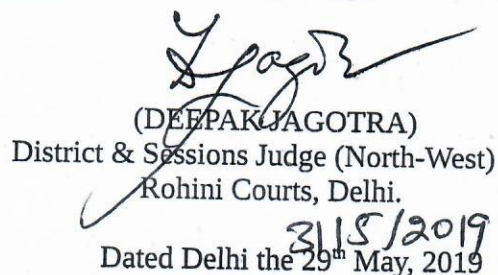 (DEEPAK JAGOTRA)
District & Sessions Judge (North-West)
Rohini Courts, Delhi.
31/5/2019
Dated Delhi the 29th May, 2019